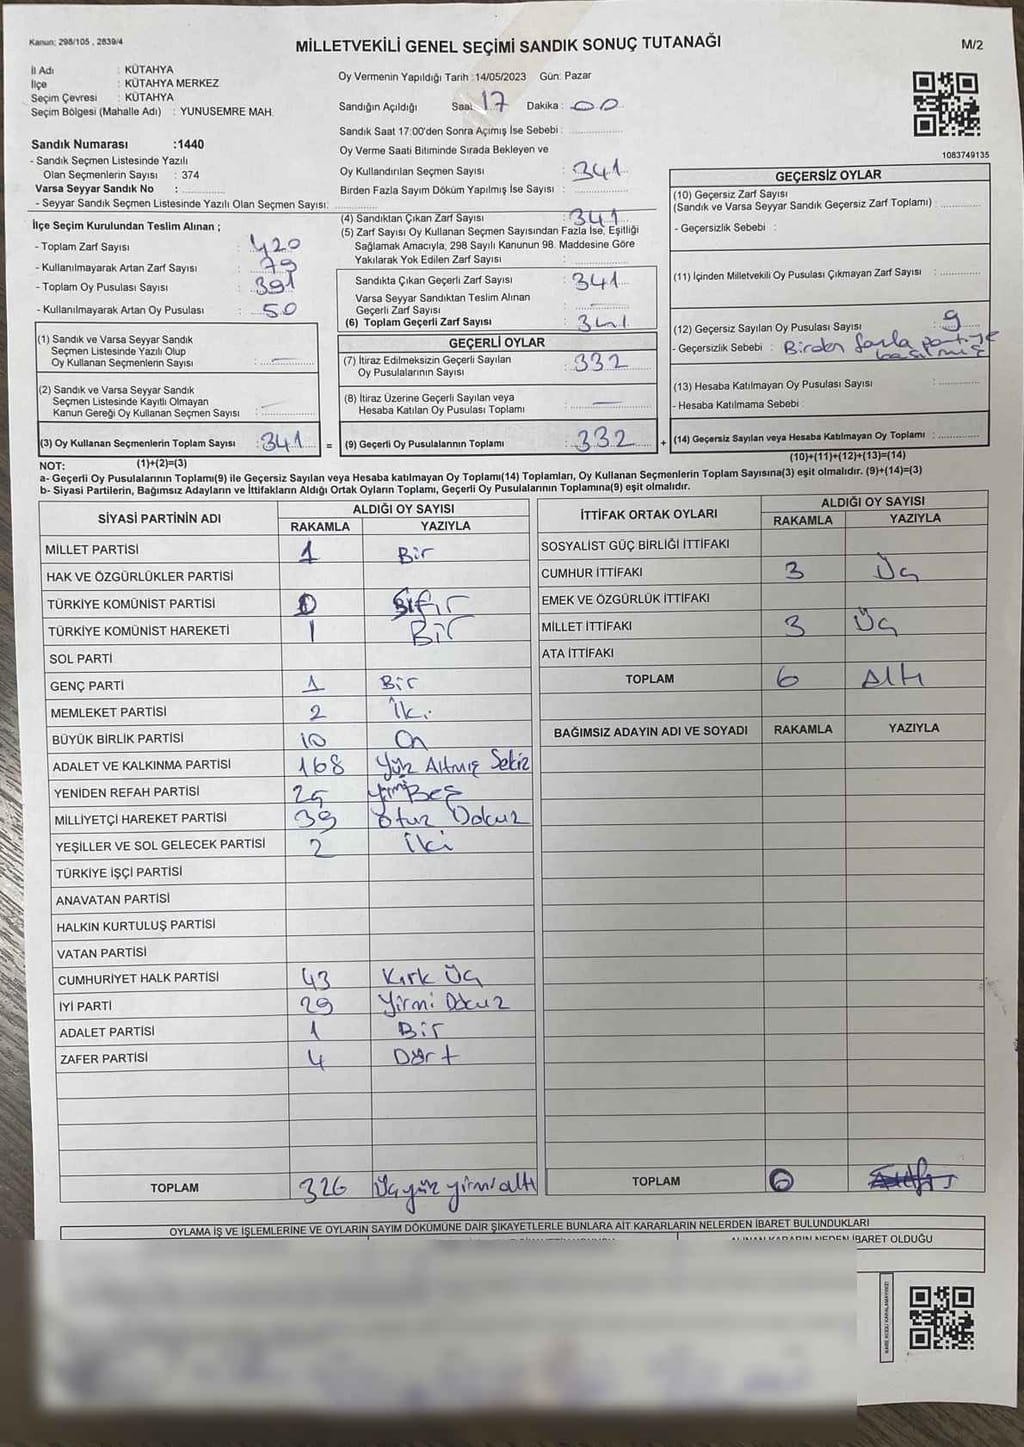 Kanun; 298/105 , 2839/4
MİLLETVEKİLİ GENEL SEÇİMİ SANDIK SONUÇ TUTANAĞI
M/2
İl Adı : KÜTAHYA
İlçe : KÜTAHYA MERKEZ
Seçim Çevresi : KÜTAHYA
Seçim Bölgesi (Mahalle Adı) : YUNUSEMRE MAH.
Sandık Numarası :1440
- Sandık Seçmen Listesinde Yazılı
Olan Seçmenlerin Sayısı : 374
Varsa Seyyar Sandık No :
- Seyyar Sandık Seçmen Listesinde Yazılı Olan Seçmen Sayısı:
İlçe Seçim Kurulundan Teslim Alınan ;
- Toplam Zarf Sayısı : 420
- Kullanılmayarak Artan Zarf Sayısı : 79
- Toplam Oy Pusulası Sayısı : 391
- Kullanılmayarak Artan Oy Pusulası : 50
(1) Sandık ve Varsa Seyyar Sandık
Seçmen Listesinde Yazılı Olup
Oy Kullanan Seçmenlerin Sayısı : —
(2) Sandık ve Varsa Seyyar Sandık
Seçmen Listesinde Kayıtlı Olmayan
Kanun Gereği Oy Kullanan Seçmen Sayısı : —
(3) Oy Kullanan Seçmenlerin Toplam Sayısı : 341 =
Oy Vermenin Yapıldığı Tarih :14/05/2023 Gün: Pazar
Sandığın Açıldığı Saat 17 Dakika : 00
Sandık Saat 17:00'den Sonra Açımış İse Sebebi :
Oy Verme Saati Bitiminde Sırada Bekleyen ve
Oy Kullandırılan Seçmen Sayısı : 341
Birden Fazla Sayım Döküm Yapılmış İse Sayısı :
(4) Sandıktan Çıkan Zarf Sayısı : 341
(5) Zarf Sayısı Oy Kullanan Seçmen Sayısından Fazla İse, Eşitliği
Sağlamak Amacıyla, 298 Sayılı Kanunun 98. Maddesine Göre
Yakılarak Yok Edilen Zarf Sayısı :
Sandıkta Çıkan Geçerli Zarf Sayısı : 341
Varsa Seyyar Sandıktan Teslim Alınan
Geçerli Zarf Sayısı :
(6) Toplam Geçerli Zarf Sayısı : 341
GEÇERLİ OYLAR
(7) İtiraz Edilmeksizin Geçerli Sayılan
Oy Pusulalarının Sayısı : 332
(8) İtiraz Üzerine Geçerli Sayılan veya
Hesaba Katılan Oy Pusulası Toplamı : —
(9) Geçerli Oy Pusulalarının Toplamı : 332 +
1083749135
GEÇERSİZ OYLAR
(10) Geçersiz Zarf Sayısı
(Sandık ve Varsa Seyyar Sandık Geçersiz Zarf Toplamı) :
- Geçersizlik Sebebi :
(11) İçinden Milletvekili Oy Pusulası Çıkmayan Zarf Sayısı :
(12) Geçersiz Sayılan Oy Pusulası Sayısı : 9
- Geçersizlik Sebebi : Birden fazla partiye
basılmış
(13) Hesaba Katılmayan Oy Pusulası Sayısı :
- Hesaba Katılmama Sebebi :
(14) Geçersiz Sayılan veya Hesaba Katılmayan Oy Toplamı :
NOT: (1)+(2)=(3) (10)+(11)+(12)+(13)=(14)
a- Geçerli Oy Pusulalarının Toplamı(9) ile Geçersiz Sayılan veya Hesaba katılmayan Oy Toplamı(14) Toplamları, Oy Kullanan Seçmenlerin Toplam Sayısına(3) eşit olmalıdır. (9)+(14)=(3)
b- Siyasi Partilerin, Bağımsız Adayların ve İttifakların Aldığı Ortak Oyların Toplamı, Geçerli Oy Pusulalarının Toplamına(9) eşit olmalıdır.
SİYASİ PARTİNİN ADI ALDIĞI OY SAYISI
RAKAMLA YAZIYLA
MİLLET PARTİSİ 1 Bir
HAK VE ÖZGÜRLÜKLER PARTİSİ
TÜRKİYE KOMÜNİST PARTİSİ 0 Sıfır
TÜRKİYE KOMÜNİST HAREKETİ 1 Bir
SOL PARTİ
GENÇ PARTİ 1 Bir
MEMLEKET PARTİSİ 2 İki
BÜYÜK BİRLİK PARTİSİ 10 On
ADALET VE KALKINMA PARTİSİ 168 Yüz Altmış Sekiz
YENİDEN REFAH PARTİSİ 25 Yirmi Beş
MİLLİYETÇİ HAREKET PARTİSİ 39 Otuz Dokuz
YEŞİLLER VE SOL GELECEK PARTİSİ 2 İki
TÜRKİYE İŞÇİ PARTİSİ
ANAVATAN PARTİSİ
HALKIN KURTULUŞ PARTİSİ
VATAN PARTİSİ
CUMHURİYET HALK PARTİSİ 43 Kırk Üç
İYİ PARTİ 29 Yirmi Dokuz
ADALET PARTİSİ 1 Bir
ZAFER PARTİSİ 4 Dört
TOPLAM 326 Üçyüz yirmi altı
İTTİFAK ORTAK OYLARI ALDIĞI OY SAYISI
RAKAMLA YAZIYLA
SOSYALİST GÜÇ BİRLİĞİ İTTİFAKI
CUMHUR İTTİFAKI 3 Üç
EMEK VE ÖZGÜRLÜK İTTİFAKI
MİLLET İTTİFAKI 3 Üç
ATA İTTİFAKI
TOPLAM 6 Altı
BAĞIMSIZ ADAYIN ADI VE SOYADI RAKAMLA YAZIYLA
TOPLAM
OYLAMA İŞ VE İŞLEMLERİNE VE OYLARIN SAYIM DÖKÜMÜNE DAİR ŞİKAYETLERLE BUNLARA AİT KARARLARIN NELERDEN İBARET BULUNDUKLARI
ALINAN KARARIN NEDEN İBARET OLDUĞU